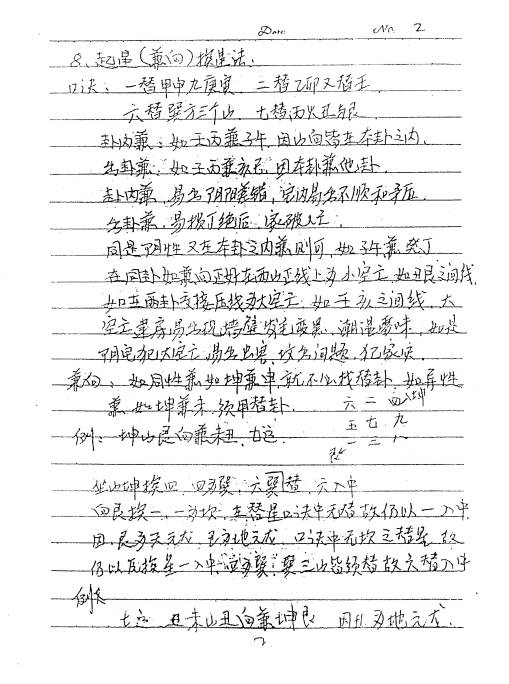 Date No. 2
8、起星(兼向)换星法：
口诀：一替甲申九庚寅 二替乙卯又酉壬
六替巽方三个山 七替丙火丑艮
卦内兼：如壬丙兼子午，因山向皆在本卦之内、
出卦兼：如壬丙兼亥巳，因本卦兼他卦、
卦内兼，易出阴阳差错，室内易出不顺和矛盾、
出卦兼，易损丁绝后，家破人亡、
同是阴性又在本卦之内兼则可，如子午兼癸丁
在同卦如兼向正好在两山正线上为小空亡，如丑艮之间线、
如在两卦交接压线为大空亡：如壬亥之间线，大
空亡建房易出现墙壁发毛变黑、潮湿霉味，如是
阴宅犯大空亡易出
兼向：如同性兼如坤兼申就不必找替卦，如异性
兼，如坤兼未，须用替卦、
六 二 四 坤
五 七 九
一 三 八
例：坤山艮向兼未丑，七运
坐山坤挨四，四为巽，六巽替，六入中
向艮挨一，一为坎，在替星口诀中无替故仍以一入中
因，艮为天元龙，丑为地元龙，口诀中无坎之替星，故
仍以原挨星一入中，四为巽，巽三山皆须替故六替入中
例
七运 丑未山丑向兼坤艮 因丑为地元龙、
2